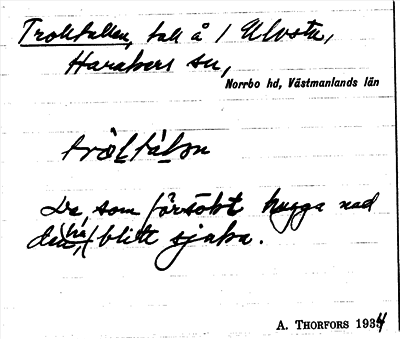 Trolltallen, tall å / Ulvsta,
Harakers sn,
Norrbo hd, Västmanlands län
De som försökt hugga ned
den, blitt sjuka.
A. THORFORS 1934